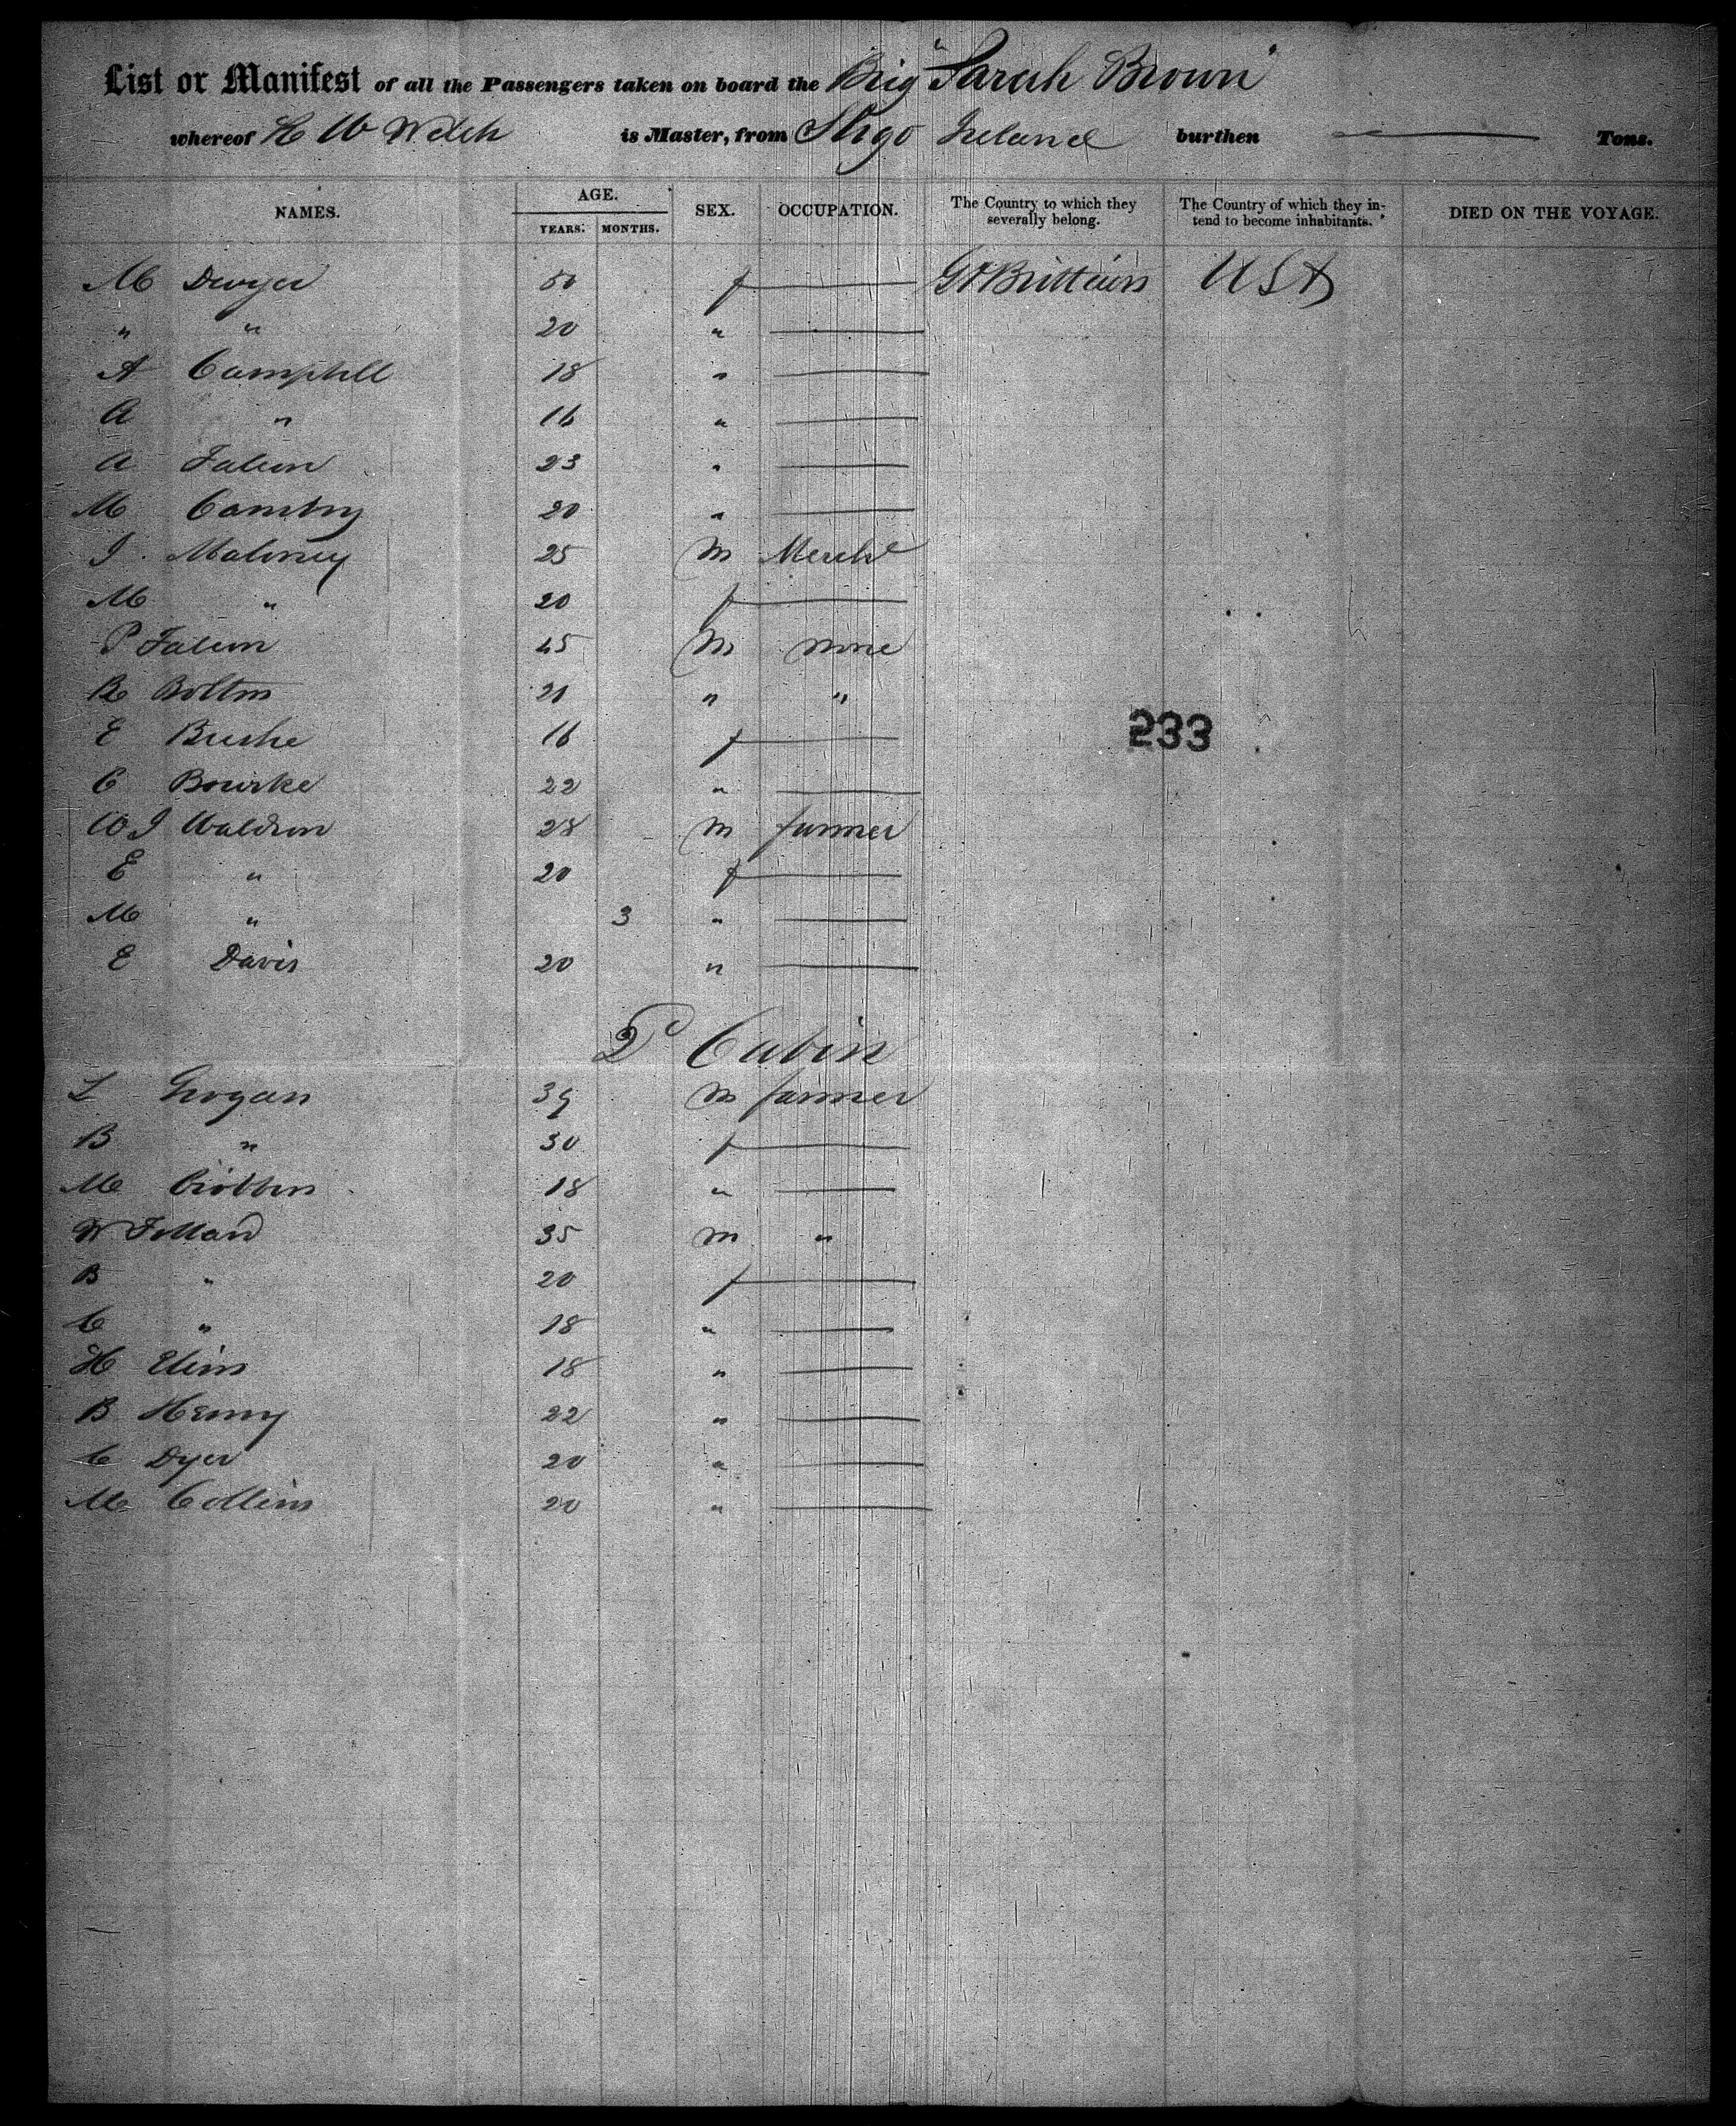 List or Manifest of all the Passengers taken on board the Brig "Sarah Brown"
whereof H W Welch is Master, from Sligo Ireland burthen — Tons.
NAMES. AGE. YEARS. MONTHS. SEX. OCCUPATION. The Country to which they severally belong. The Country of which they intend to become inhabitants. DIED ON THE VOYAGE.
M Dwyer 50 f — Gt Brittain USA
" " 20 " —
A Campbell 18 " —
A " 16 " —
A Falion 23 " —
M 20 " —
J. Maloney 25 m Mercht
M " 20 f —
P Falion 45 m none
R Bolton 21 " "
E 16 f —
C Bourke 22 " —
W J Waldron 28 m farmer
E " 20 f —
M " 3 " —
E Davis 20 " —
2d Cabin
L Grogan 39 m farmer
B " 30 f —
M 18 " —
W 35 m "
B " 20 f —
C " 18 " —
H 18 " —
B Henry 22 " —
C Dyer 20 " —
M Collins 20 " —
233